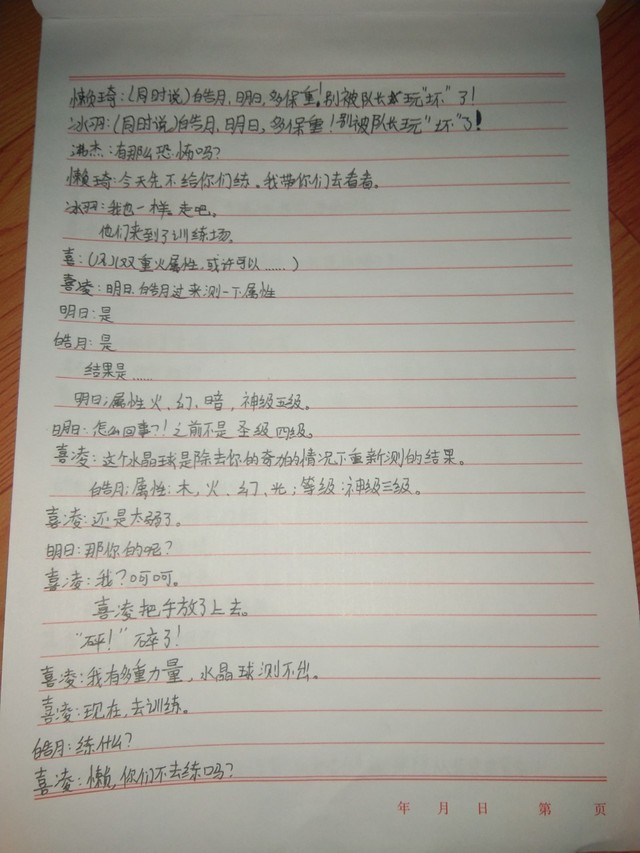 懒琦：（同时说）皓月、明日，多保重！别被队长玩“坏”了！
冰羽：（同时说）皓月、明日，多保重！别被队长玩“坏”了！
洪杰：有那么恐怖吗？
懒琦：今天先不给你们练。我带你们去看看。
冰羽：我也一样。走吧。
他们来到了训练场。
喜：（双重火属性，或许可以……）
喜凌：明日、皓月过来测一下属性
明日：是
皓月：是
结果是……
明日；属性火、幻、暗，神级五级。
明日：怎么回事？！之前不是圣级四级。
喜凌：这个水晶球是除去你的奇力的情况下重新测的结果。
皓月；属性：木、火、幻、光；等级：神级三级。
喜凌：还是太弱了。
明日：那你的呢？
喜凌：我？呵呵。
喜凌把手放了上去。
“砰！”碎了！
喜凌：我有多重力量，水晶球测不出。
喜凌：现在，去训练。
皓月：练什么？
喜凌：懒，你们不去练吗？
年 月 日 第 页